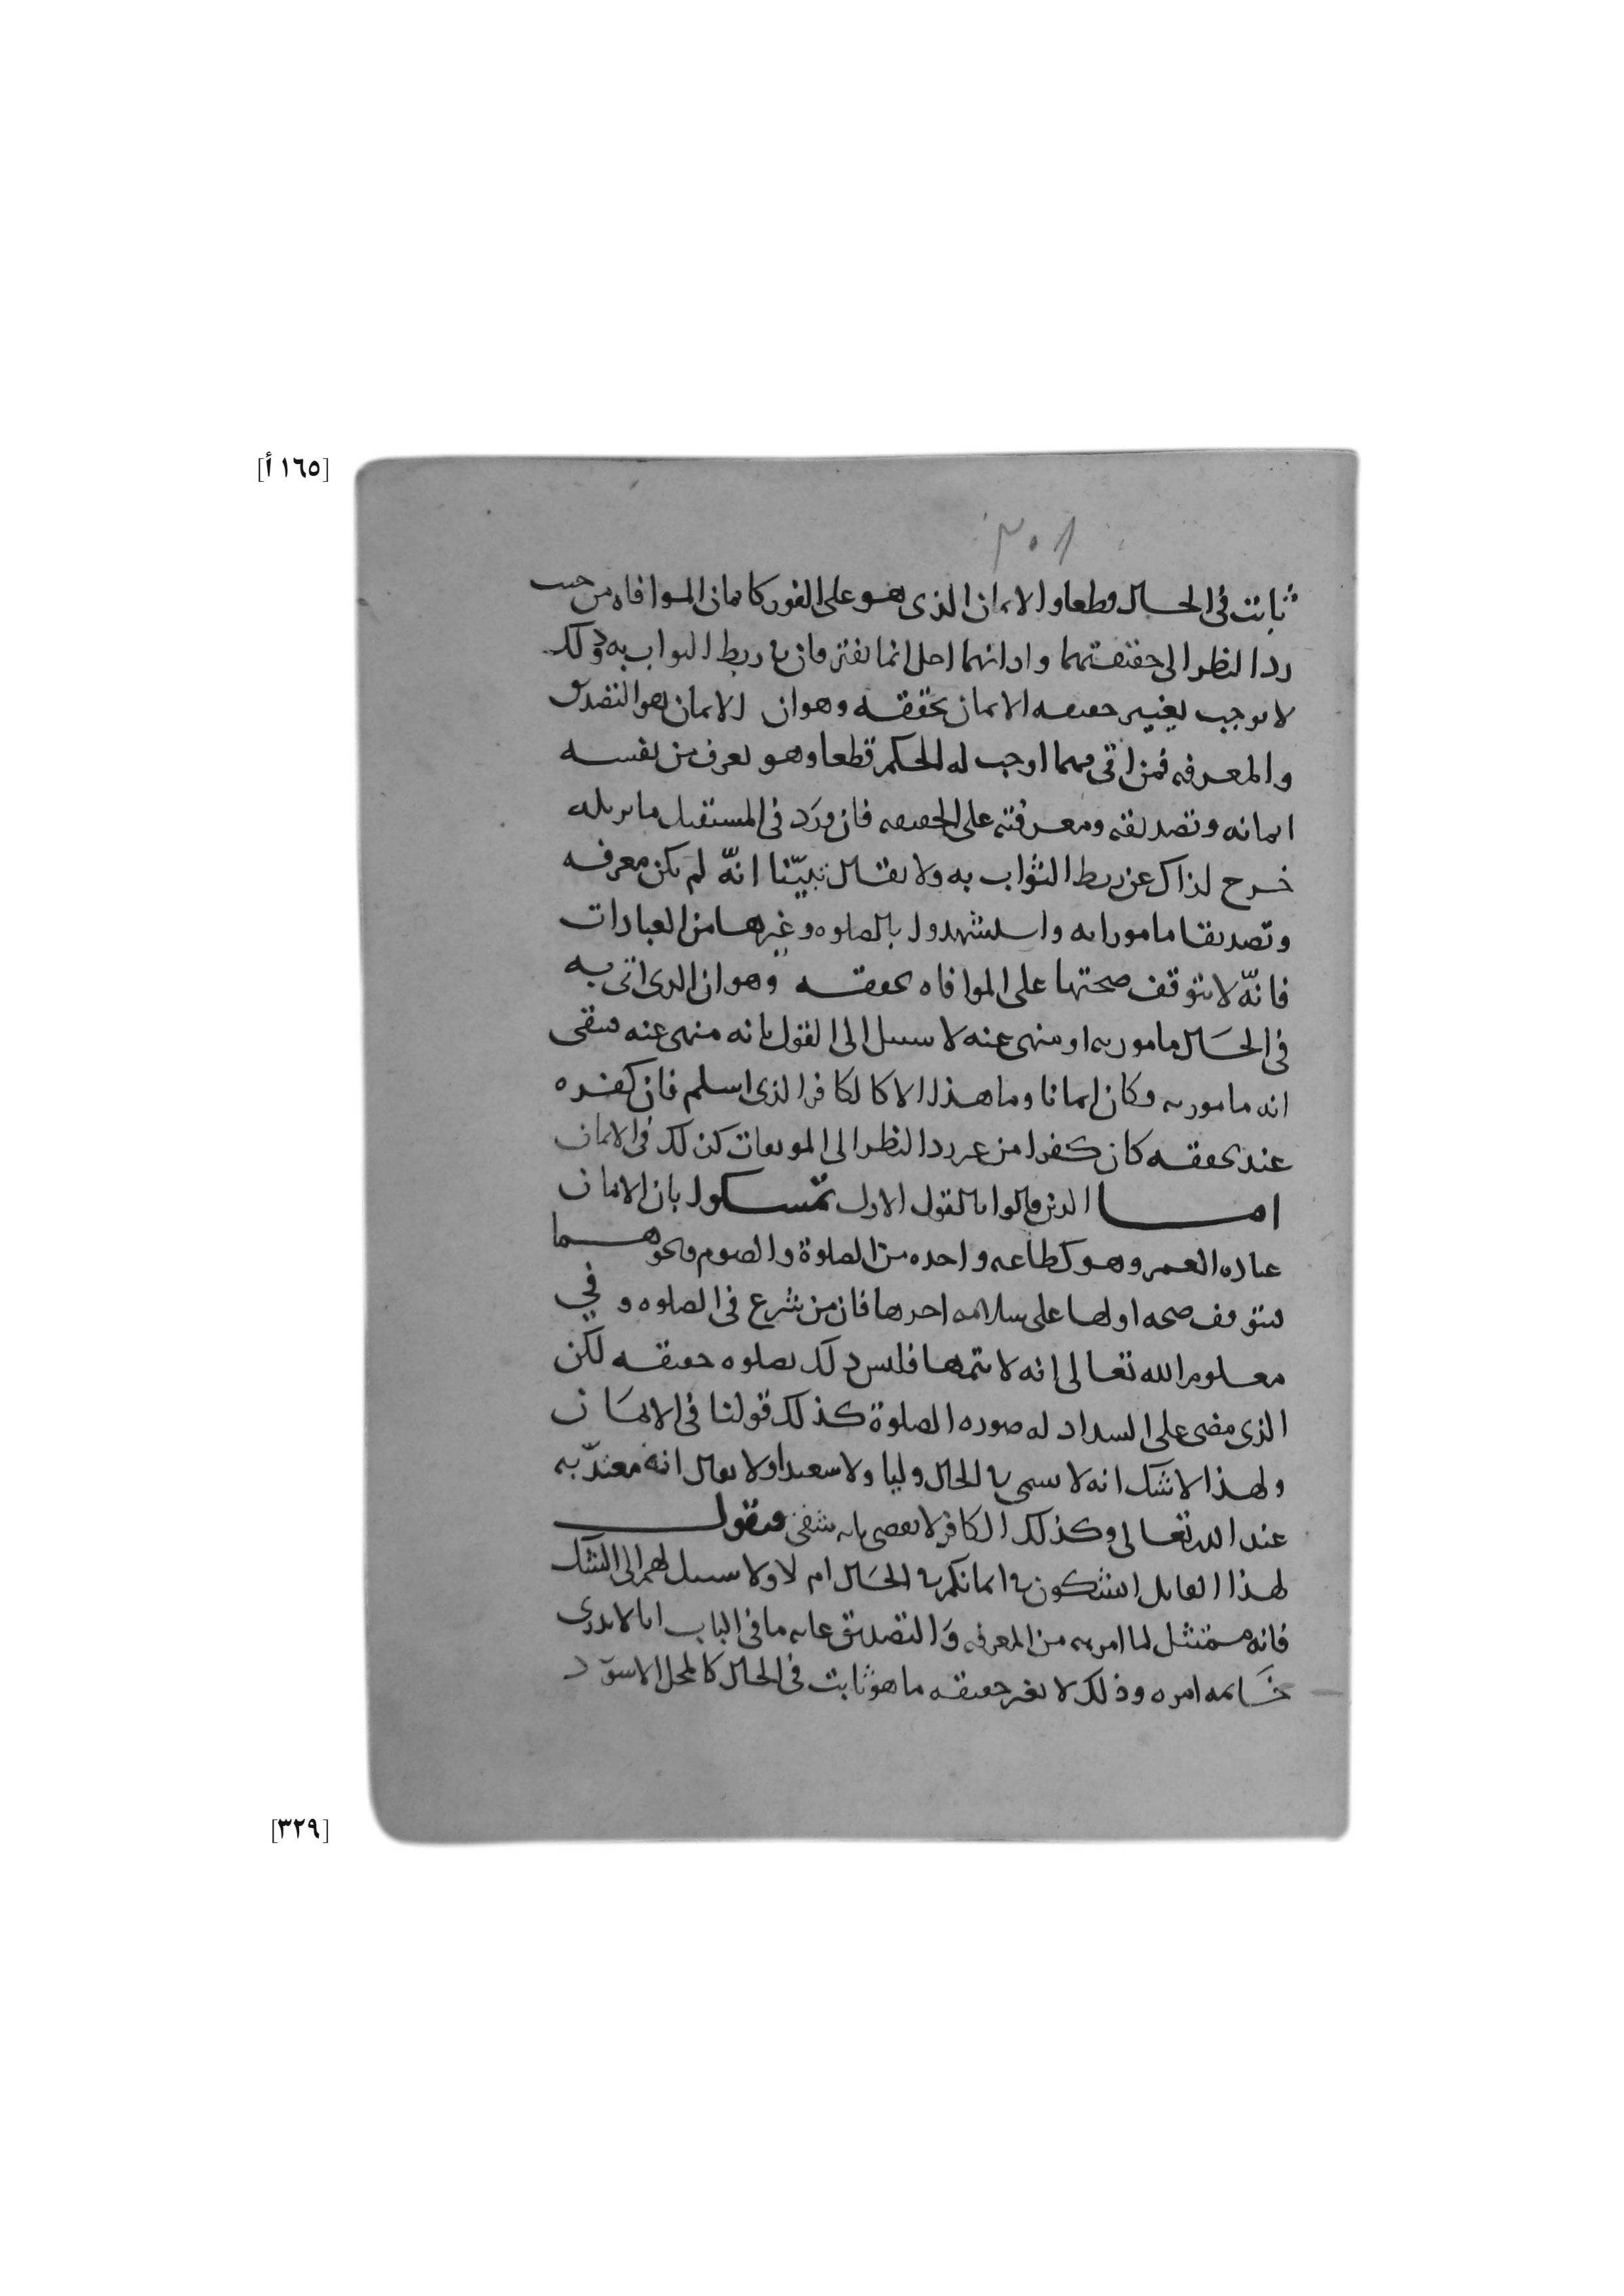 [١٦٥ أ]
٣٠٨
ثابت في الحال قطعا والايمان الذي هو على الفور كايمان الموافاه من حيث
رد النظر الى حقيقتهما وادائهما انما يفترقان في ربط الثواب به وذلك
لا يوجب تغيير حقيقه الايمان تحققه وهو ان الايمان هو التصديق
والمعرفه فمن اتى بهما اوجب له الحكم قطعا وهو يعرف من نفسه
ايمانه وتصديقه ومعرفته على الحقيقه فان ورد في المستقبل ما يزيله
خرج لذاك عن ربط الثواب به ولا يقال تبيّنا انّه لم يكن معرفه
وتصديقا مامورا به واستشهدوا بالصلوه وغيرها من العبادات
فانّه لا يتوقف صحتها على الموافاه تحققه وهو ان الذي اتى به
في الحال مامور به او منهى عنه لا سبيل الى القول بانه منهى عنه فبقى
انه مامور به وكان ايمانا وما هذا الا كالكافر الذي اسلم فان كفره
عند تحققه كان كفرا من غير رد النظر الى المتوقعات كذلك في الايمان
اما الذين قالوا بالقول الاول تمسكوا بان الايمان
عباده العمر وهو كطاعه واحده من الصلوة والصوم ونحوهما
فيتوقف صحه اولها على سلامه اخرها فان من شرع في الصلوه وفي
معلوم الله تعالى انه لا يتمها فليس ذلك بصلوه حقيقه لكن
الذي مضى على السداد له صوره الصلوة كذلك قولنا في الايمان
ولهذا لا شك انه لا يسمى في الحال وليا ولا سعيدا ولا يقال انه معتدّ به
عند الله تعالى وكذلك الكافر لا يقضى بانه شقي فنقول
لهذا القايل اتشكون في ايمانكم في الحال ام لا ولا سبيل لهم الى الشك
فانه ممتثل لما امر به من المعرفه والتصديق غايه ما في الباب انا لا ندري
خاتمه امره وذلك لا يغير حقيقه ما هو ثابت في الحال كالمحل الاسود
[٣٢٩]